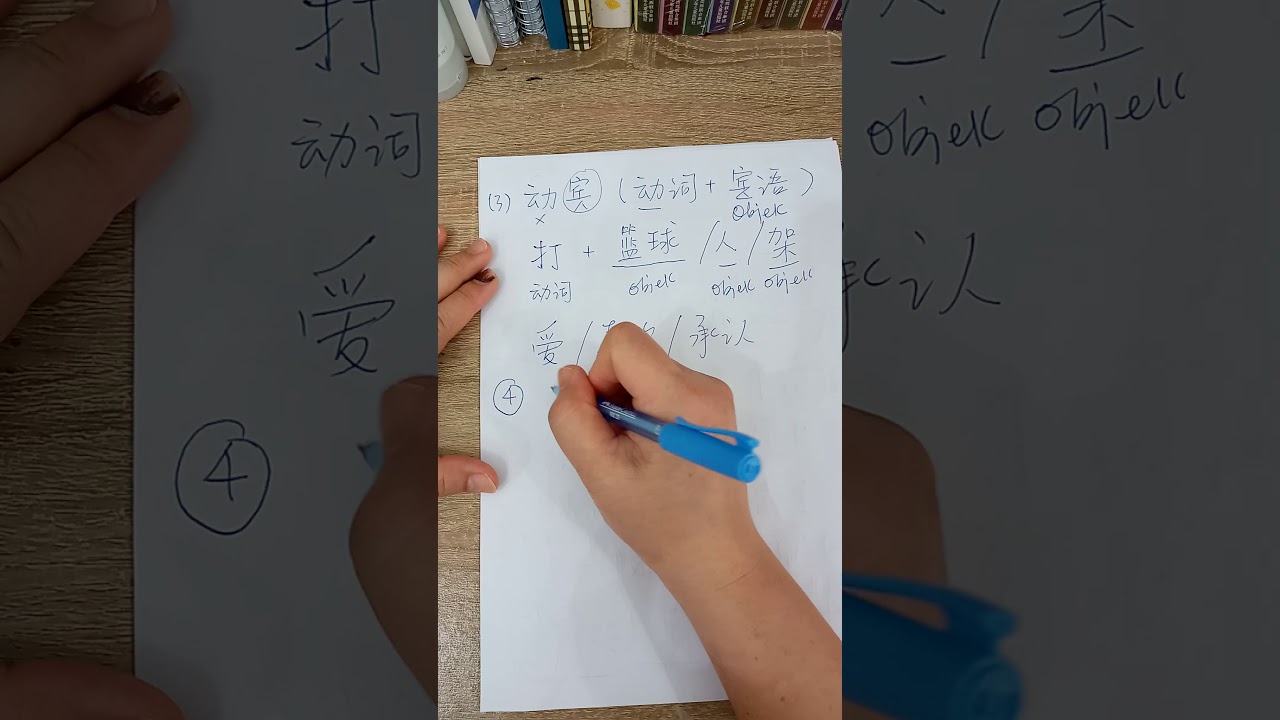 (3) 动宾 (动词 + 宾语)
Objek
打 + 篮球 / 人 / 架
动词 objek objek objek
爱 / / 承认
④